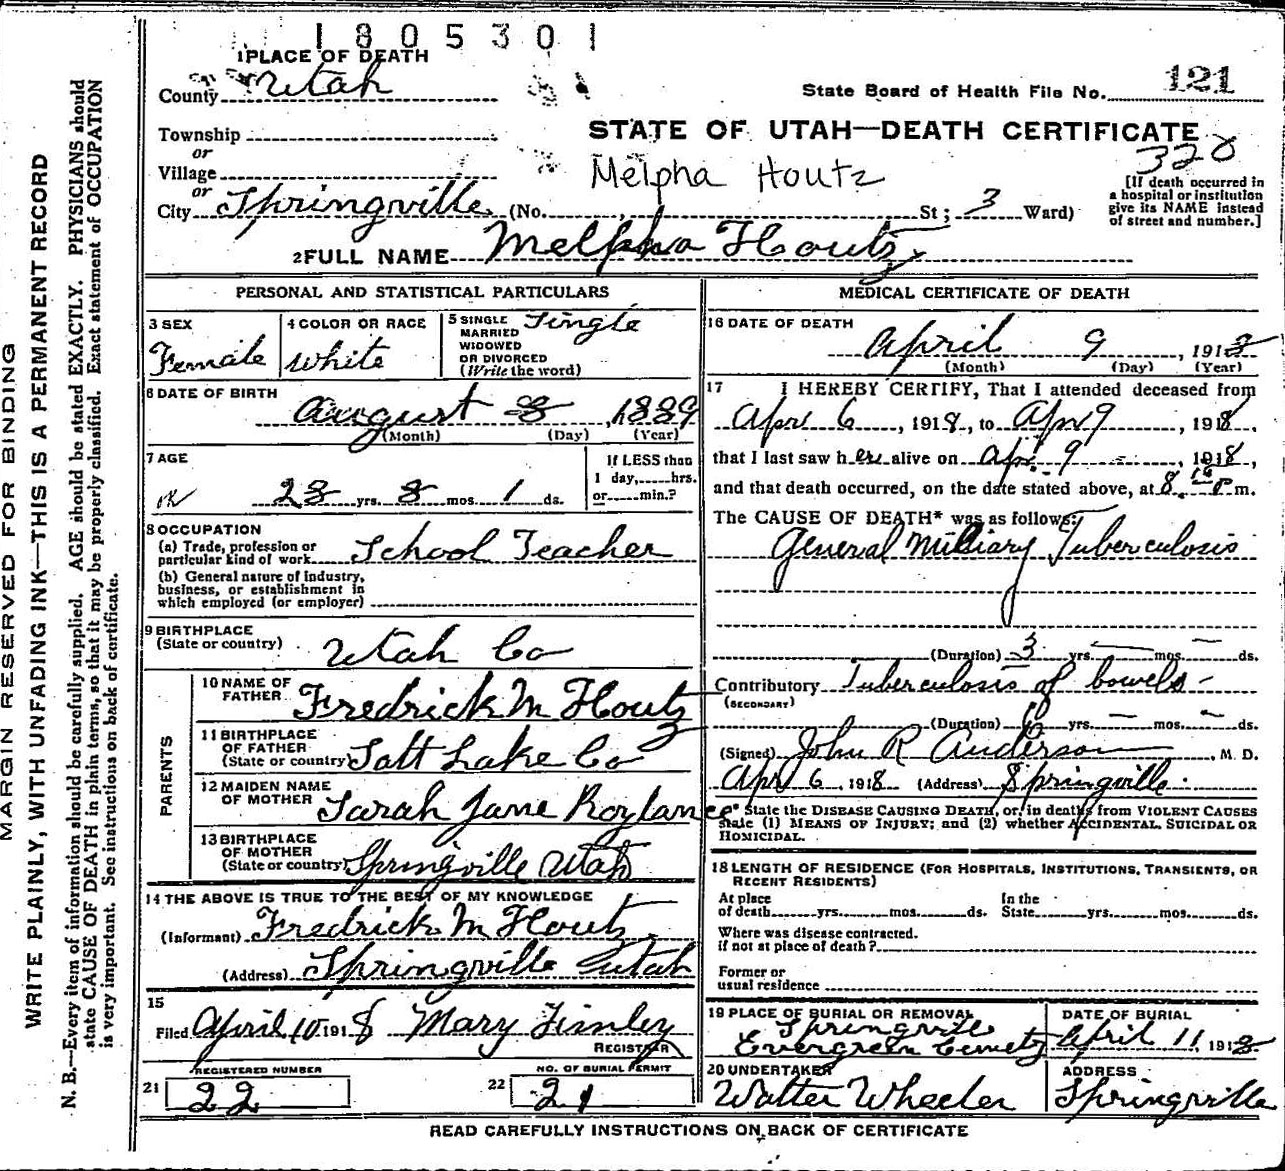 1805301
1 PLACE OF DEATH
County Utah
State Board of Health File No. 121
Township
or
Village
or
STATE OF UTAH—DEATH CERTIFICATE
328
Melpha Houtz
[If death occurred in a hospital or institution give its NAME instead of street and number.]
City Springville (No. St; 3 Ward)
2 FULL NAME Melpha Houtz
PERSONAL AND STATISTICAL PARTICULARS
3 SEX Female
4 COLOR OR RACE White
5 SINGLE MARRIED WIDOWED OR DIVORCED (Write the word) Single
6 DATE OF BIRTH
August 8, 1889
(Month) (Day) (Year)
7 AGE
OK 28 yrs. 8 mos. 1 ds.
If LESS than 1 day, hrs. or min.?
8 OCCUPATION
(a) Trade, profession or particular kind of work School Teacher
(b) General nature of industry, business, or establishment in which employed (or employer)
9 BIRTHPLACE
(State or country) Utah Co
PARENTS
10 NAME OF FATHER Fredrick M Houtz
11 BIRTHPLACE OF FATHER (State or country) Salt Lake Co
12 MAIDEN NAME OF MOTHER Sarah Jane Roylance
13 BIRTHPLACE OF MOTHER (State or country) Springville Utah
14 THE ABOVE IS TRUE TO THE BEST OF MY KNOWLEDGE
(Informant) Fredrick M Houtz
(Address) Springville Utah
15
Filed April 10 1918 Mary Finley
REGISTRAR
REGISTERED NUMBER
21 22
NO. OF BURIAL PERMIT
22 21
MEDICAL CERTIFICATE OF DEATH
16 DATE OF DEATH
April 9, 1918
(Month) (Day) (Year)
17 I HEREBY CERTIFY, That I attended deceased from
Apr 6, 1918, to Apr 9, 1918,
that I last saw her alive on Apr 9, 1918,
and that death occurred, on the date stated above, at 8.15 P m.
The CAUSE OF DEATH* was as follows:
General Milliary Tuberculosis
(Duration) 3 yrs. — mos. — ds.
Contributory Tuberculosis of bowels -
(SECONDARY)
(Duration) yrs. — mos. - ds.
(Signed) John R Anderson, M. D.
Apr 6, 1918 (Address) Springville.
* State the DISEASE CAUSING DEATH, or, in deaths from VIOLENT CAUSES
state (1) MEANS OF INJURY; and (2) whether ACCIDENTAL, SUICIDAL OR
HOMICIDAL.
18 LENGTH OF RESIDENCE (FOR HOSPITALS, INSTITUTIONS, TRANSIENTS, OR
RECENT RESIDENTS)
At place of death yrs. mos. ds. In the State yrs. mos. ds.
Where was disease contracted.
if not at place of death?
Former or
usual residence
19 PLACE OF BURIAL OR REMOVAL
Springville
Evergreen Cemetery
DATE OF BURIAL
April 11, 1918
20 UNDERTAKER
Walter Wheeler
ADDRESS
Springville
READ CAREFULLY INSTRUCTIONS ON BACK OF CERTIFICATE
MARGIN RESERVED FOR BINDING
WRITE PLAINLY, WITH UNFADING INK—THIS IS A PERMANENT RECORD
N. B.—Every item of information should be carefully supplied. AGE should be stated EXACTLY. PHYSICIANS should
state CAUSE OF DEATH in plain terms, so that it may be properly classified. Exact statement of OCCUPATION
is very important. See instructions on back of certificate.